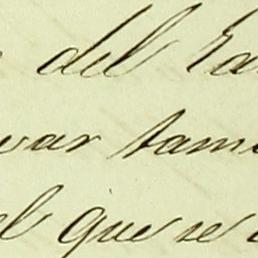 del
var tam
el que se